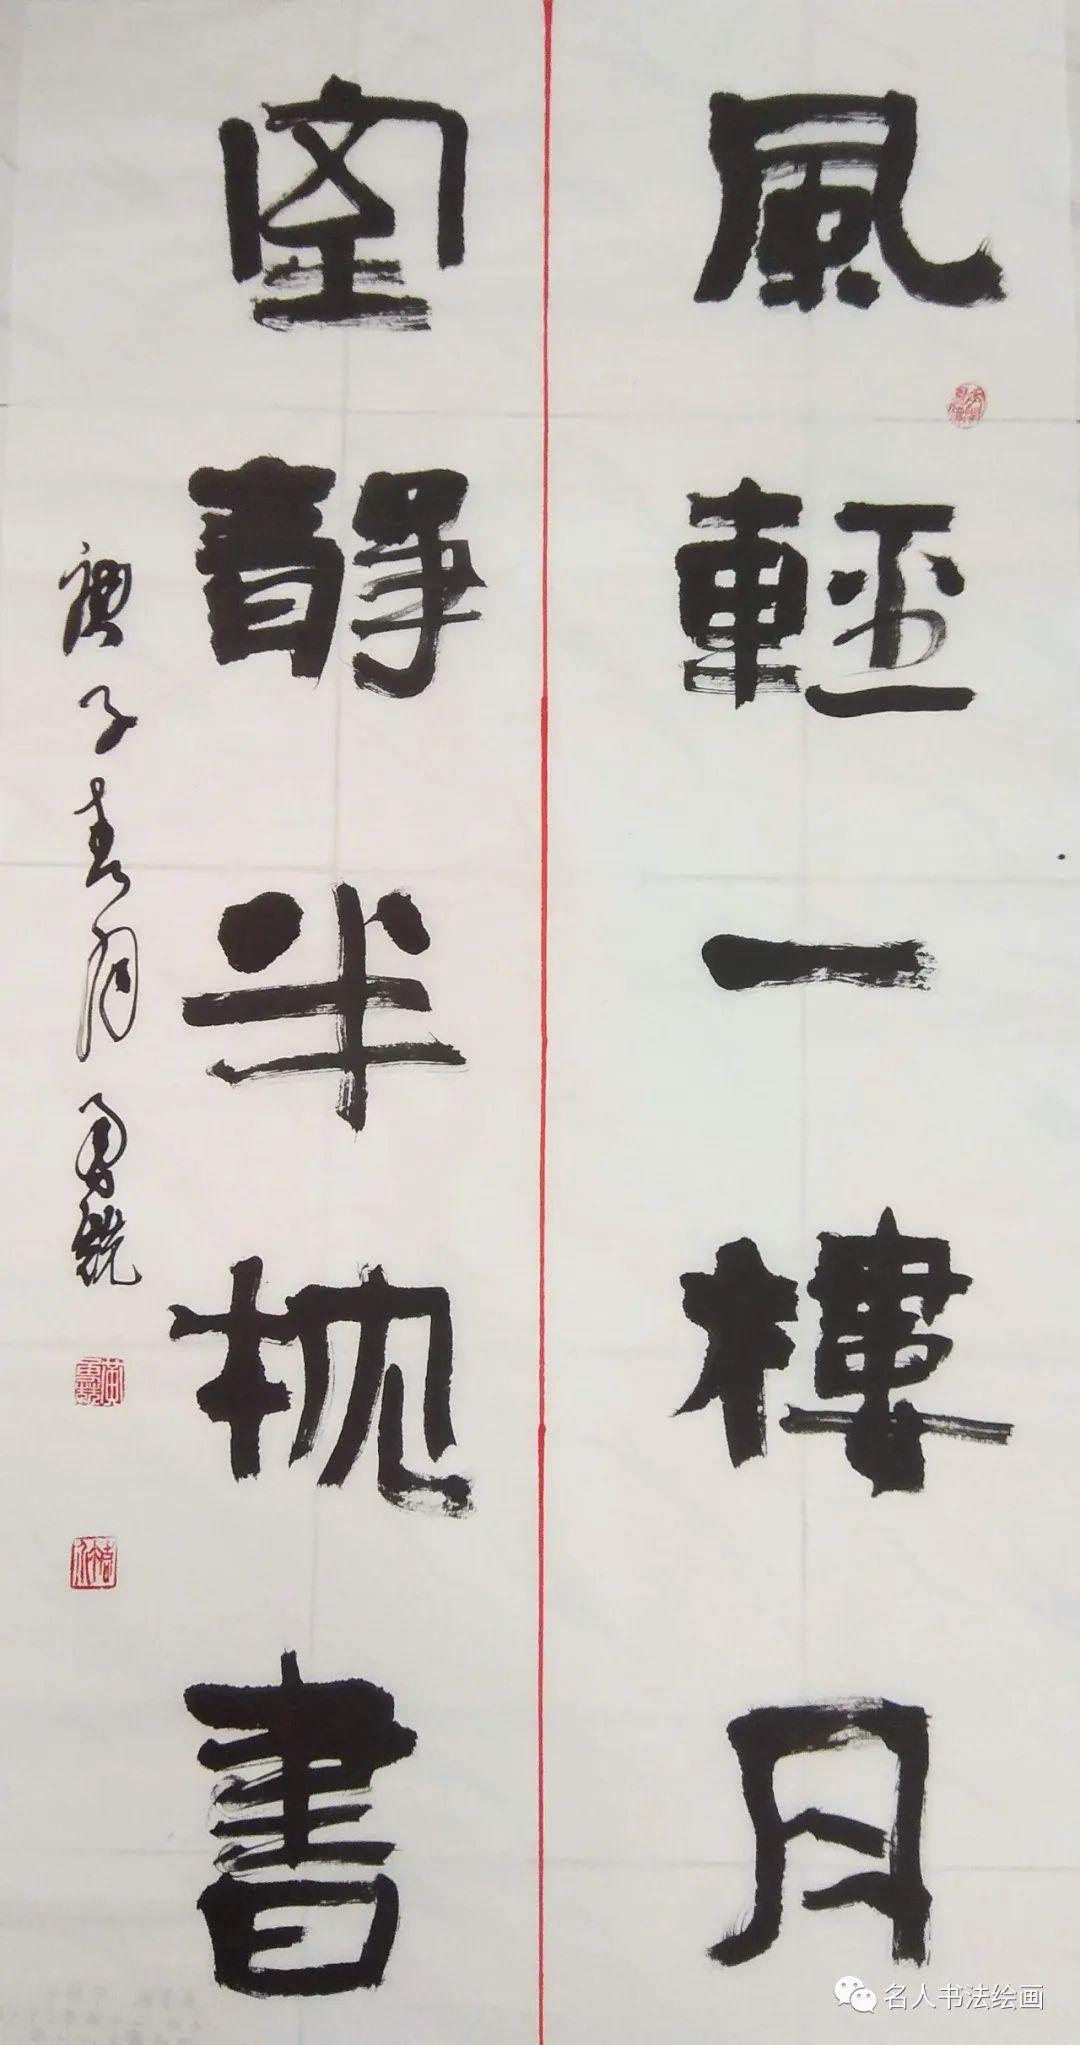 風輕一樓月
室靜半枕書
庚子春月
名人书法绘画